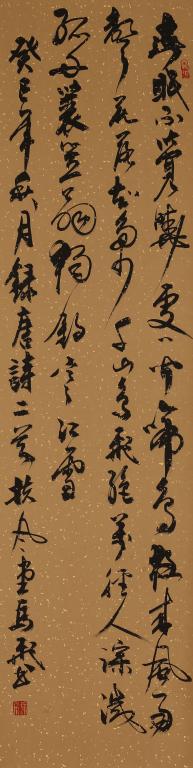 春眠不覺曉處々聞啼鳥夜來風雨
聲花落知多少千山鳥飛絕萬徑人踪滅
孤舟蓑笠翁獨釣寒江雪
癸巳年秋月錄唐詩二首扶風堂馬書